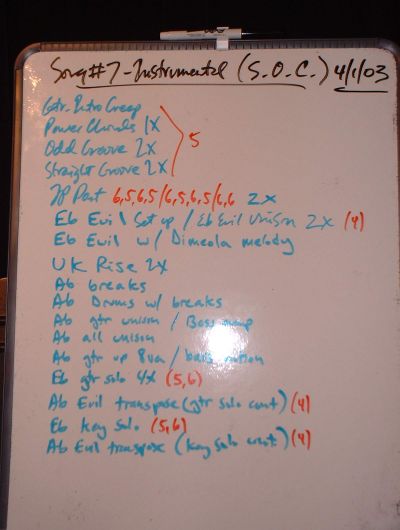 Song #7 - Instrumental (S.O.C.) 4/1/03
Gtr. Intro Creep
Power Chords 1X
Odd Groove 2X
Straight Groove 2X
5
JP Part 6,5,6,5/6,5,6,5/6,6 2X
Eb Evil Set up / Eb Evil Unison 2X (4)
Eb Evil w/ Dimeola melody
UK Rise 2X
Ab breaks
Ab Drums w/ breaks
Ab gtr unison / Bass
Ab all unison
Ab gtr up 8va / bass unison
Eb gtr solo 4X (5,6)
Ab Evil transpose (gtr solo cont) (4)
Eb key solo (5,6)
Ab Evil transpose (key solo cont.) (4)